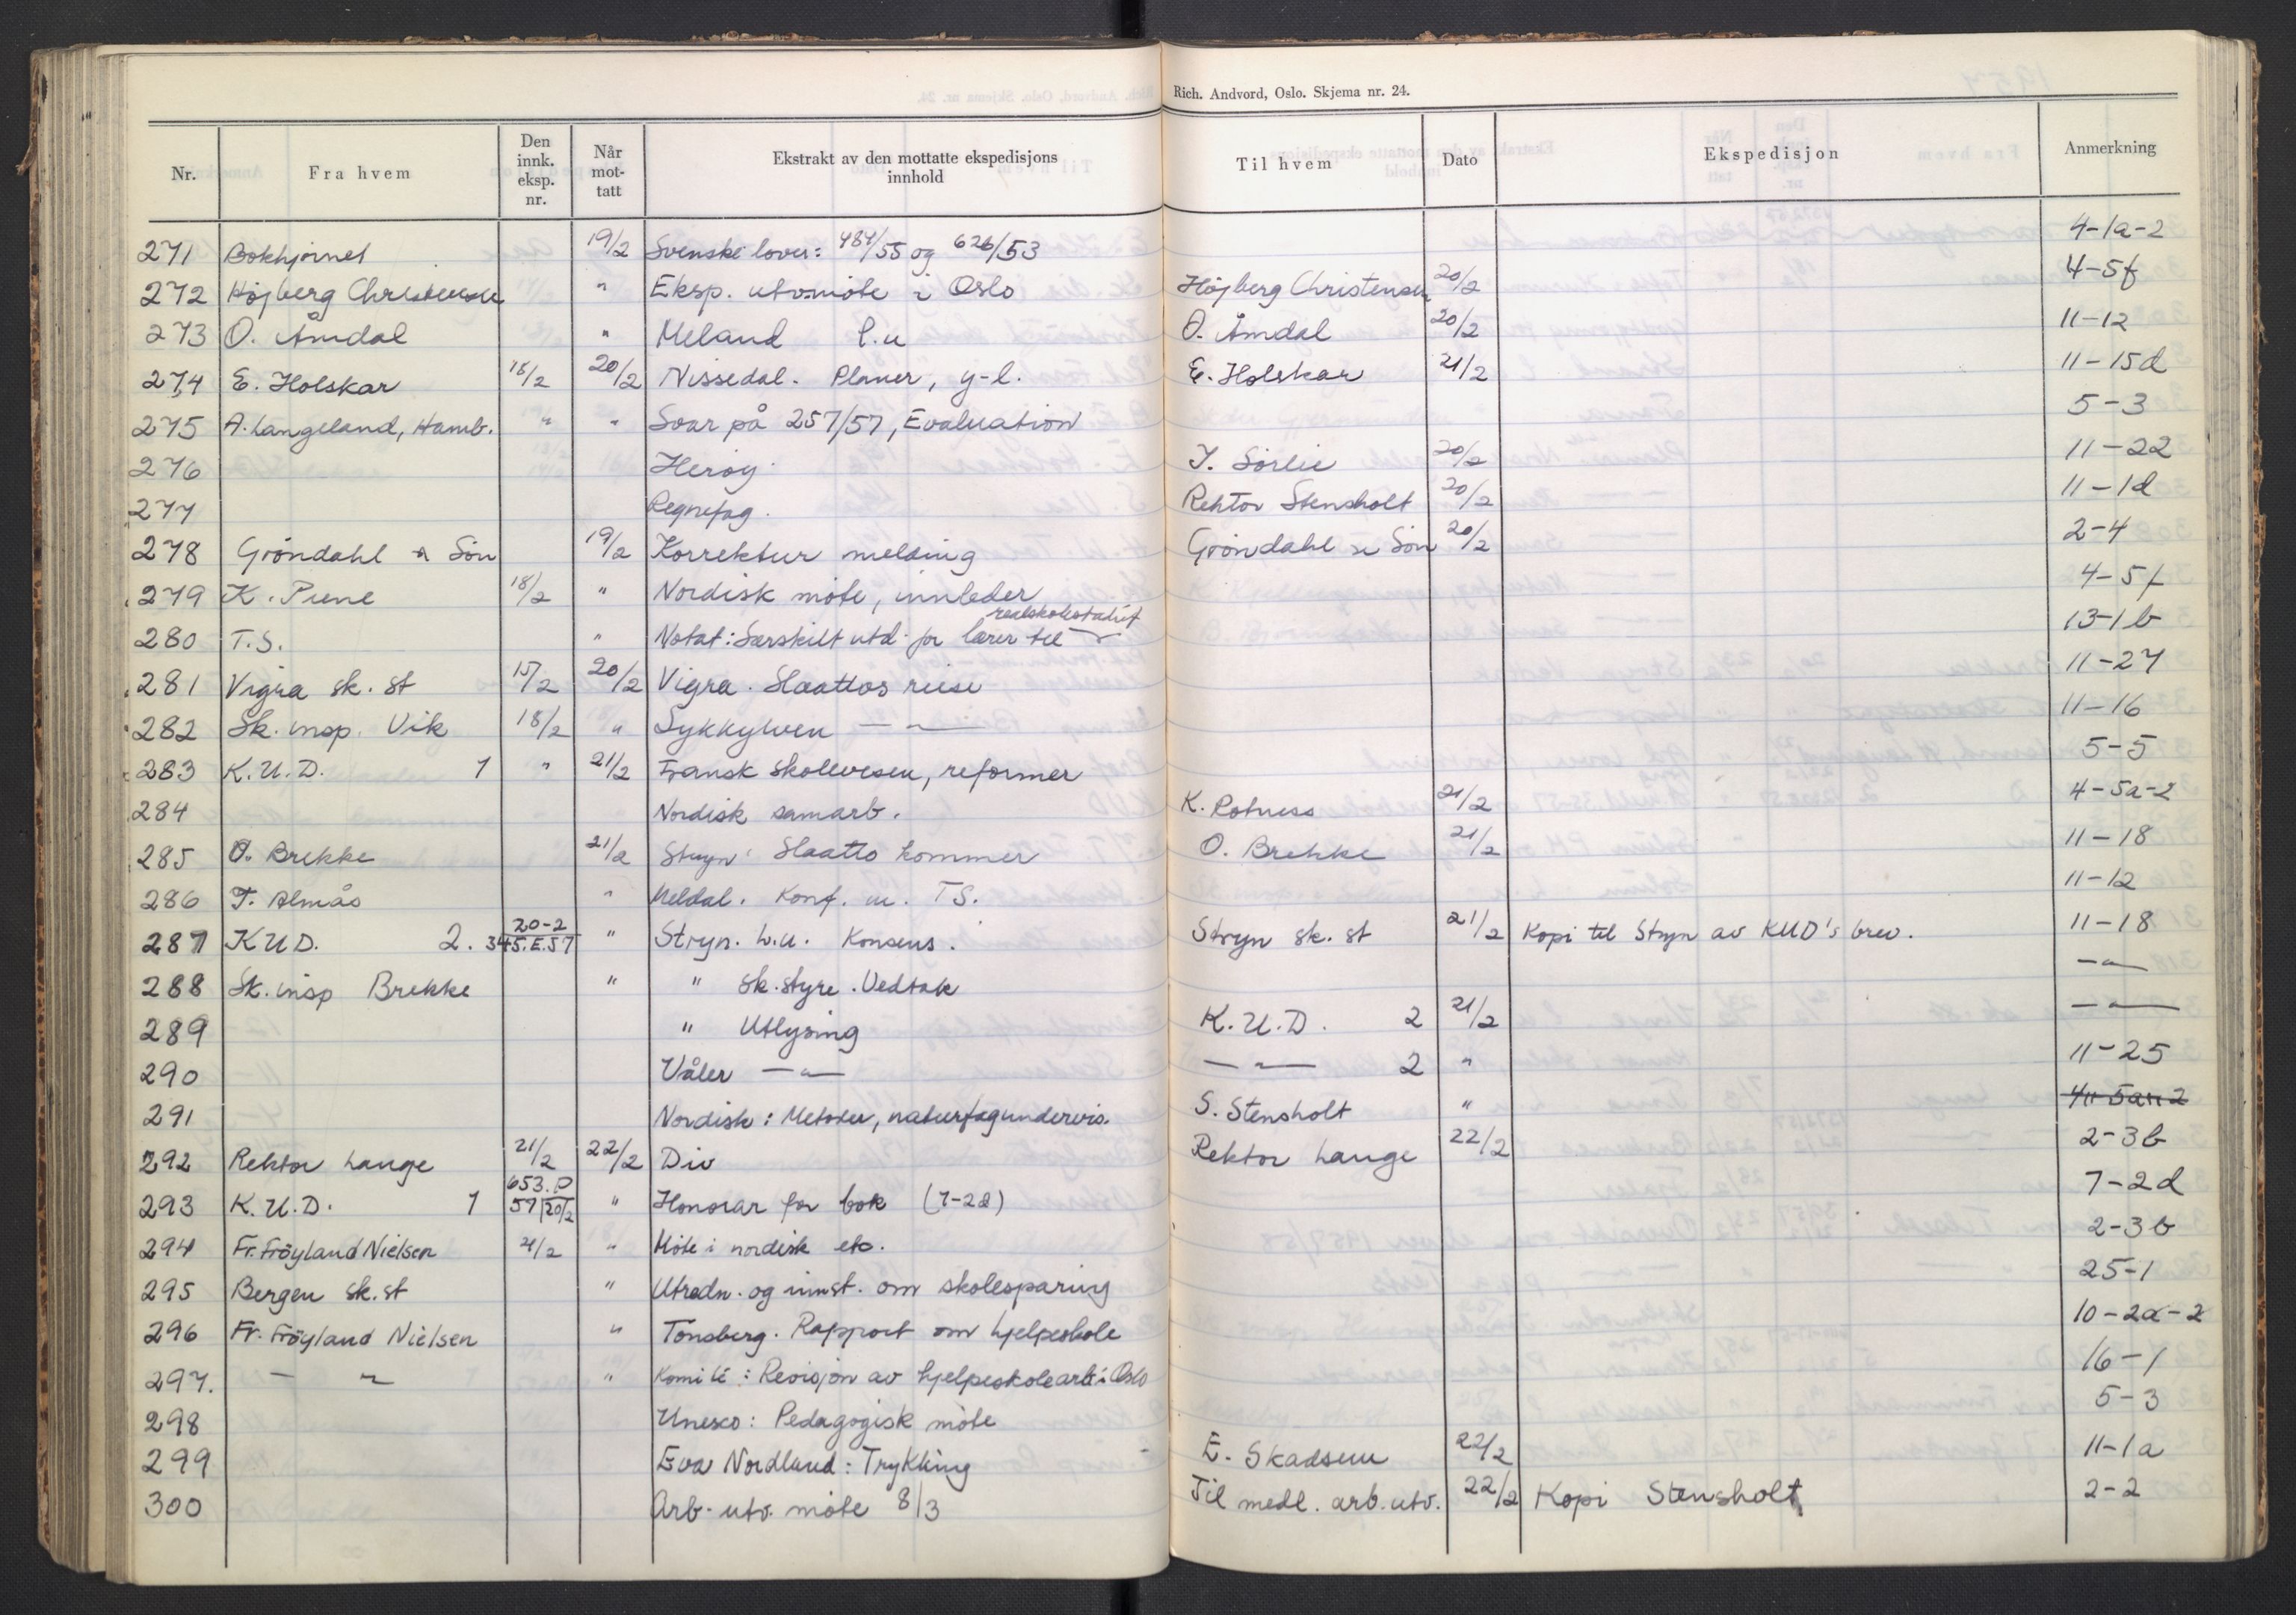 Rich. Andvord, Oslo. Skjema nr. 24.
Nr. Fra hvem Den innk. eksp. nr. Når mot-tatt Ekstrakt av den mottatte ekspedisjons innhold Til hvem Dato Ekspedisjon Anmerkning
271 Bokhjørnet 19/2 Svenske lover: 484/55 og 626/53 4-1a-2
272 Højberg Christensen " Eksp. utv.møte i Oslo Højberg Christensen 20/2 4-5f
273 O. Åmdal " Meland l.u O. Åmdal 20/2 11-12
274 E. Holskar 18/2 20/2 Nissedal. Planer, y-l. E. Holskar 21/2 11-15d
275 A. Langeland, Hamb. " " Svar på 257/57, Evaluation 5-3
276 Herøy I. Sørlie 20/2 11-22
277 Regnefag. Rektor Stensholt 20/2 11-1d
278 Grøndahl & Søn 19/2 Korrektur melding Grøndahl & Søn 20/2 2-4
279 K. Piene 18/2 " Nordisk møte, innleder 4-5f
realskolestadiet
280 T.S. " Notat: Særskilt utd. for lærer til 13-1b
281 Vigra sk. st 15/2 20/2 Vigra. Slaattos reise 11-27
282 Sk. insp. Vik 18/2 " Sykkylven — " — 11-16
283 K.U.D. 1 " 21/2 Fransk skolevesen, reformer 5-5
284 Nordisk samarb. K. Rotness 21/2 4-5a-2
285 O. Brekke 21/2 Stryn: Slaatto kommer O. Brekke 21/2 11-18
286 T. Almås " Meldal. Konf. m. T.S. 11-12
287 KUD. 2. 20-2 345.E.57 " Stryn. l.u. Konsens. Stryn sk. st 21/2 Kopi til Stryn av KUD's brev. 11-18
288 Sk. insp Brekke " " sk.styre. Vedtak — " —
289 " Utlysing K.U.D. 2 21/2 — " —
290 Våler — " — — " — 2 " 11-25
291 Nordisk: Metoder, naturfagundervis. S. Stensholt " 4-5a-2
292 Rektor Lange 21/2 22/2 Div Rektor Lange 22/2 2-3b
293 K.U.D. 1 653.D 57 20/2 " Honorar for bok (7-2d) 7-2d
294 Fr. Frøyland Nielsen 21/2 " Møte i nordisk etc. 2-3b
295 Bergen sk.st " Utredn. og innst. om skolesparing 25-1
296 Fr. Frøyland Nielsen " Tønsberg. Rapport om hjelpeskole 10-2a-2
297. — " " Komité: Revisjon av hjelpeskolearb. i Oslo 16-1
298 Unesco: Pedagogisk møte 5-3
299 Eva Nordland: Trykking E. Skadsem 22/2 11-1a
300 Arb. utv. møte 8/3 Til medl. arb. utv. 22/2 Kopi Stensholt 2-2